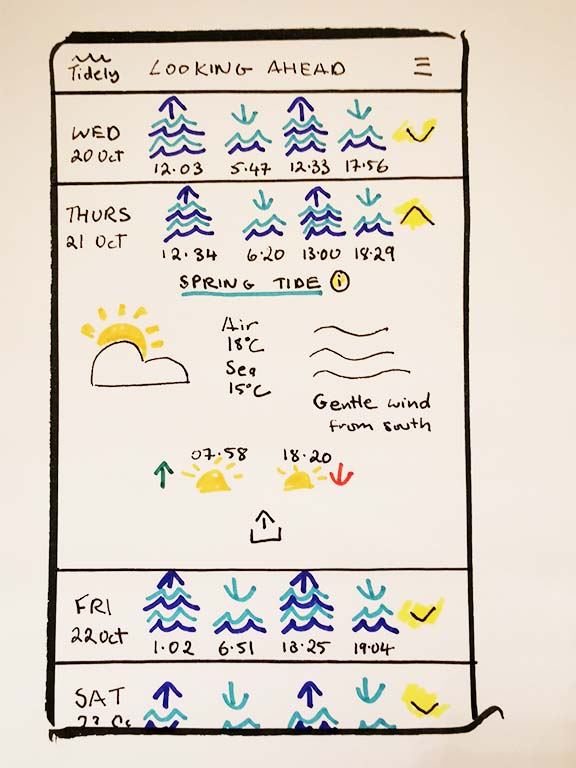 Tidely LOOKING AHEAD
WED
20 Oct
12.03 5.47 12.33 17.56
THURS
21 Oct
12.34 6.20 13.00 18.29
SPRING TIDE i
Air
18°C
Sea
15°C
Gentle wind
from south
07.58 18.20
FRI
22 Oct
1.02 6.51 13.25 19.04
SAT